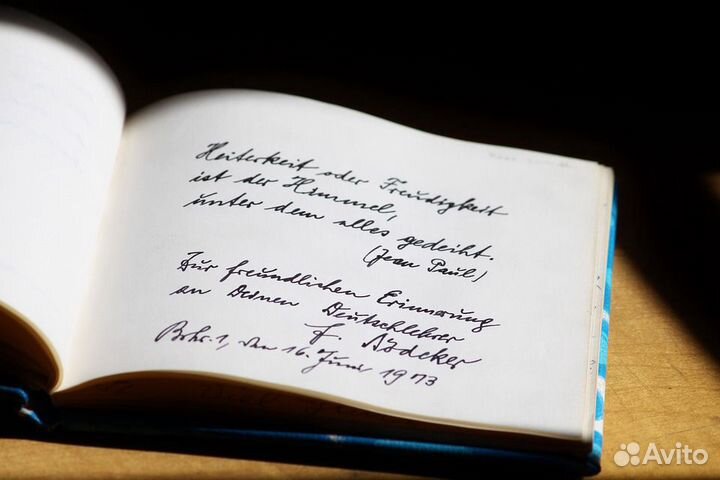 Heiterkeit oder Freudigkeit
ist der Himmel,
unter dem alles gedeiht.
(Jean Paul)
Zur freundlichen Erinnerung
an Deinen Deutschlehrer
F. Bödeker
den 16. Juni 1973
Avito